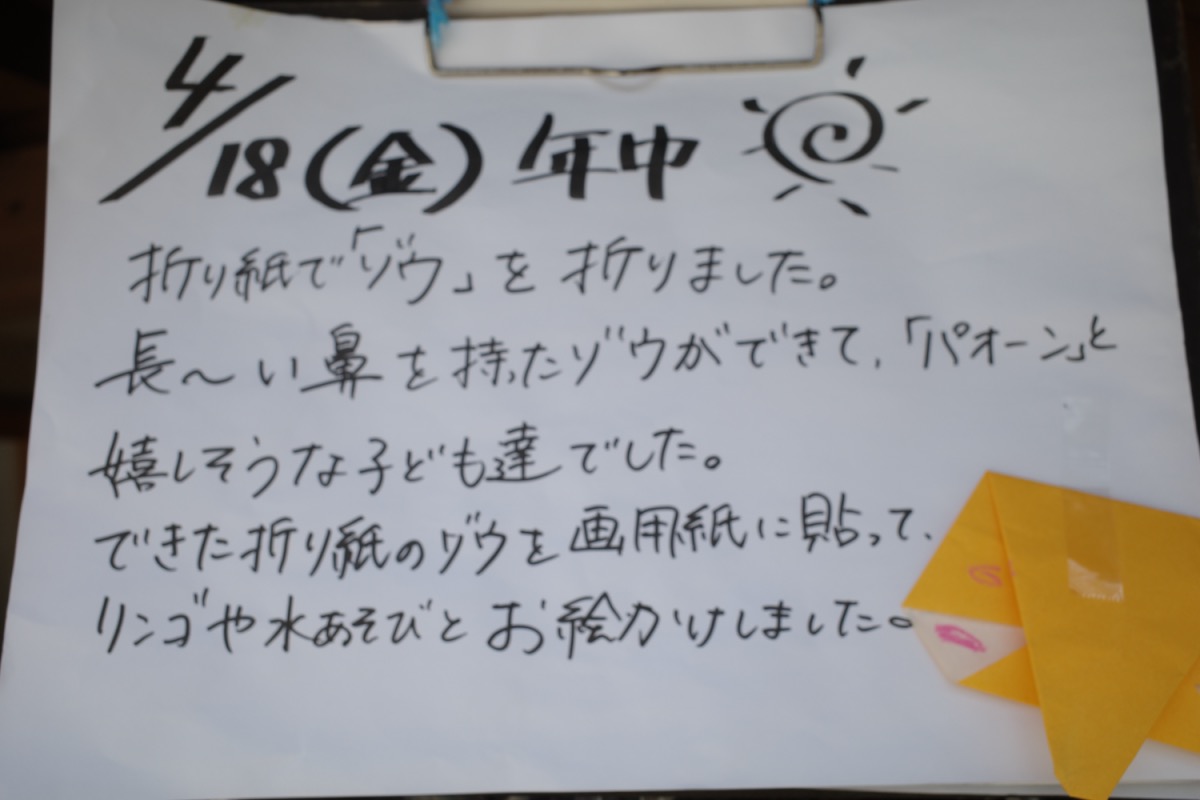 4/18(金) 年中
折り紙で「ゾウ」を折りました。
長〜い鼻を持ったゾウができて、「パオーン」と
嬉しそうな子ども達でした。
できた折り紙のゾウを画用紙に貼って、
リンゴや水あそびとお絵かけしました。